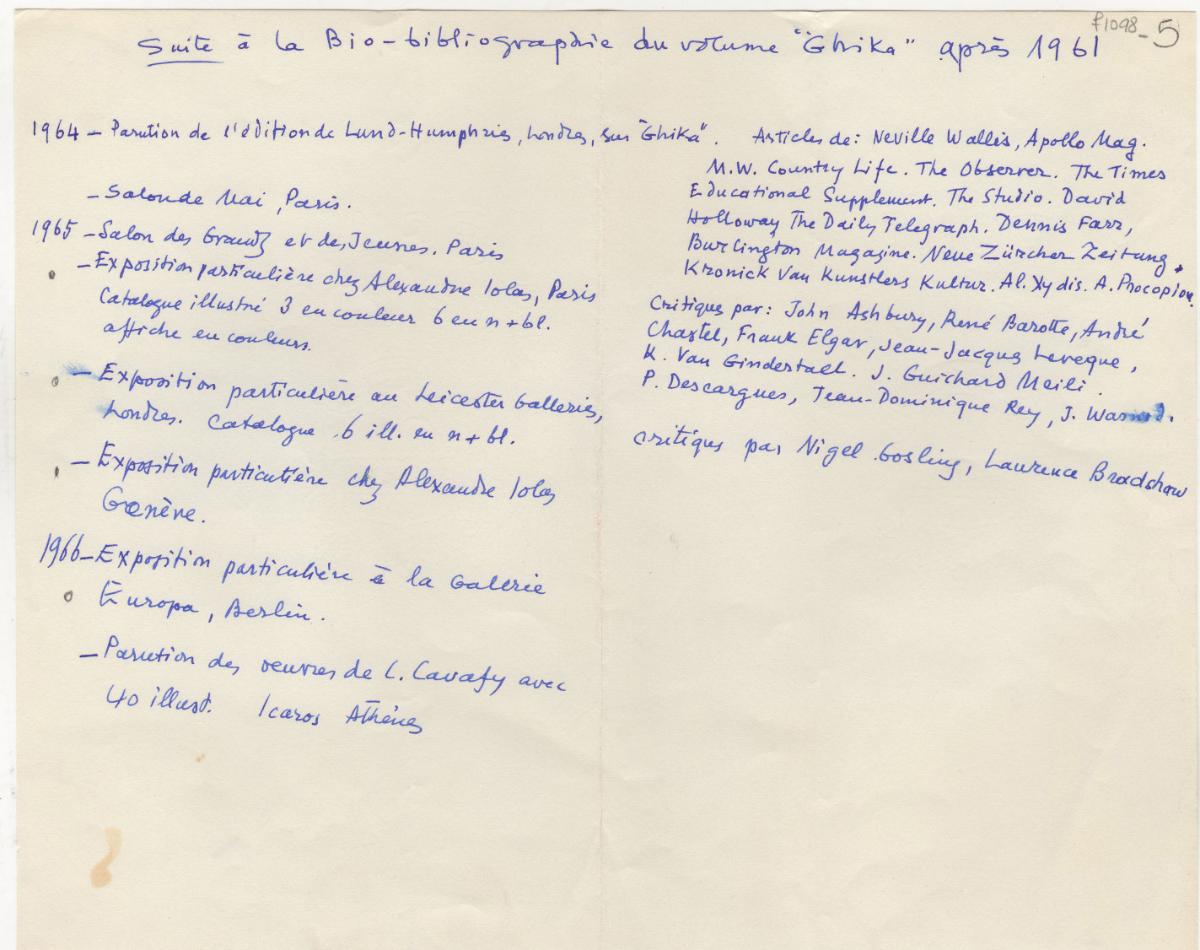 f1098-5
Suite à la Bio-bibliographie du volume "Ghika" après 1961
1964 – Parution de l'édition de Lund-Humphries, Londres, sur "Ghika".
– Salon de Mai, Paris.
1965 – Salon des Grands et des Jeunes. Paris
– Exposition particulière chez Alexandre Iolas, Paris
Catalogue illustré 3 en couleur 6 en n + bl.
affiche en couleurs.
– Exposition particulière au Leicester Galleries,
Londres. Catalogue 6 ill. en n + bl.
– Exposition particulière chez Alexandre Iolas
Genève.
1966 – Exposition particulière à la Galerie
Europa, Berlin.
– Parution des oeuvres de C. Cavafy avec
40 illust. Icaros Athènes
Articles de: Neville Wallis, Apollo Mag.
M.W. Country Life. The Observer. The Times
Educational Supplement. The Studio. David
Holloway The Daily Telegraph. Dennis Farr,
Burlington Magazine. Neue Zürcher Zeitung.
Kronick Van Kunstlers Kultur. Al. Xydis. A. Procopiou.
Critiques par: John Ashbury, René Barotte, André
Chastel, Frank Elgar, Jean-Jacques Leveque,
K. Van Gindertael. J. Guichard Meili.
P. Descargues, Jean-Dominique Rey, J.
critiques par Nigel Gosling, Laurence Bradshaw